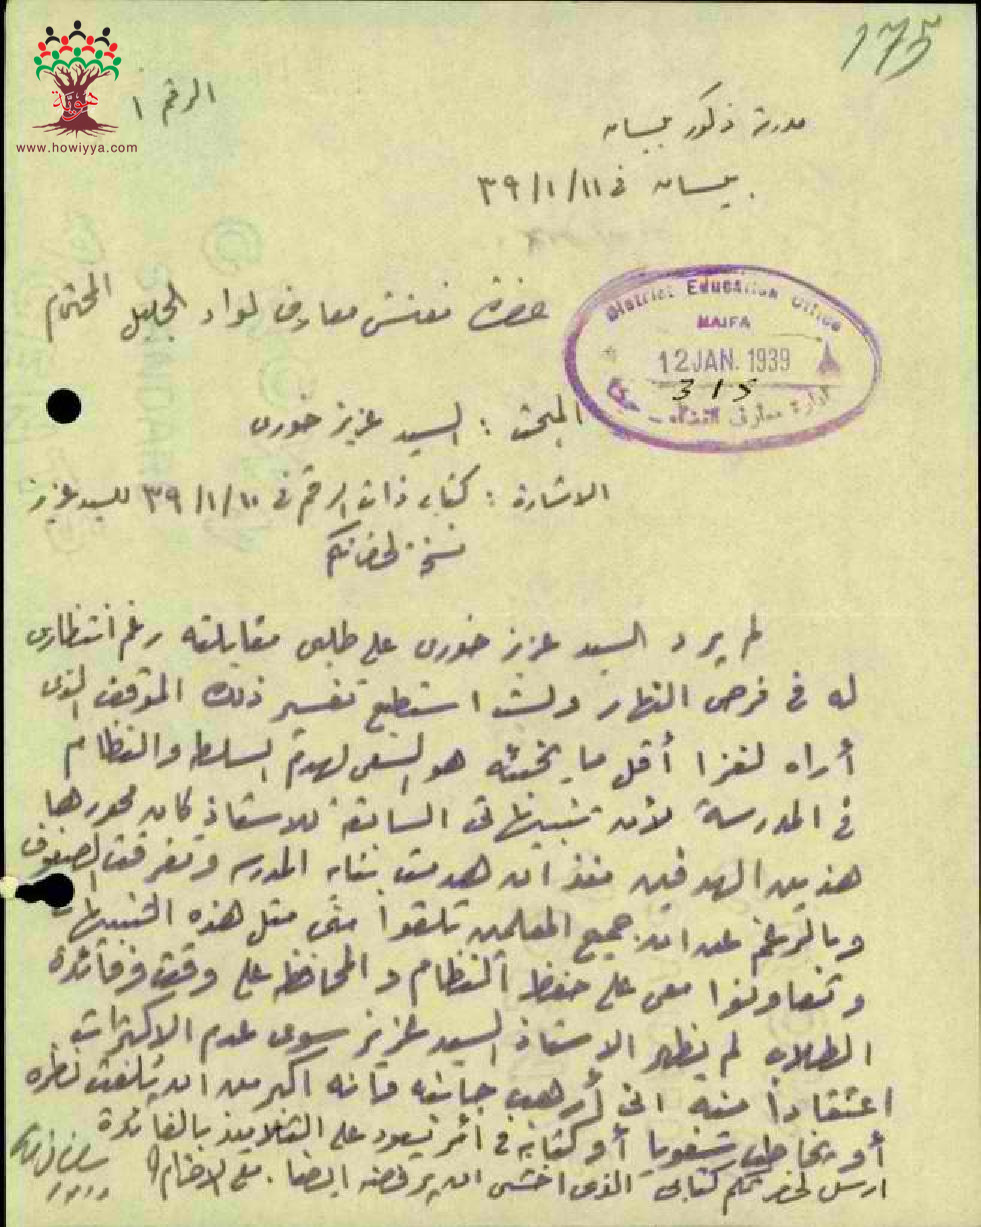 175
هوية
www.howiyya.com
الرقم ١
مدرسة ذكور بيسان
بيسان في ١١/١/٣٩
حضرة مفتش معارف لواء الجليل المحترم
District Education Office
HAIFA
12 JAN. 1939
315
ادارة معارف
المبحث : السيد عزيز خوري
الاشارة : كتابي ذات الرقم في ١٠/١/٣٩ للسيد عزيز
نسخة لحضرتكم
لم يرد السيد عزيز خوري على طلبي مقابلته رغم انتظاري
له في فرص النهار ولست استطيع تفسير ذلك الموقف الذي
أراه لغزا أقل ما يخبئه هو السعي لهدم السلطة والنظام
في المدرسة لأن تنبيهاتي السابقة للاستاذ كان محورها
هذين الهدفين منذ ان هدمت بناية المدرسة وتفرقت الصفوف
وبالرغم عن ان جميع المعلمين تلقوا مني مثل هذه التنبيهات
وتعاونوا معي على حفظ النظام والمحافظة على وقت وفائدة
الطلاب لم يظهر الاستاذ السيد عزيز سوى عدم الاكتراث
اعتقاداً منه اني أرهب جانبه فانه اكبر من ان يلفت نظره
أو يخاطب شفويا أو كتابة في أمر يعود على التلاميذ بالفائدة
ارسل لحضرتكم كتابي الذي اخشى ان يرفضه ايضا . مع الاحترام